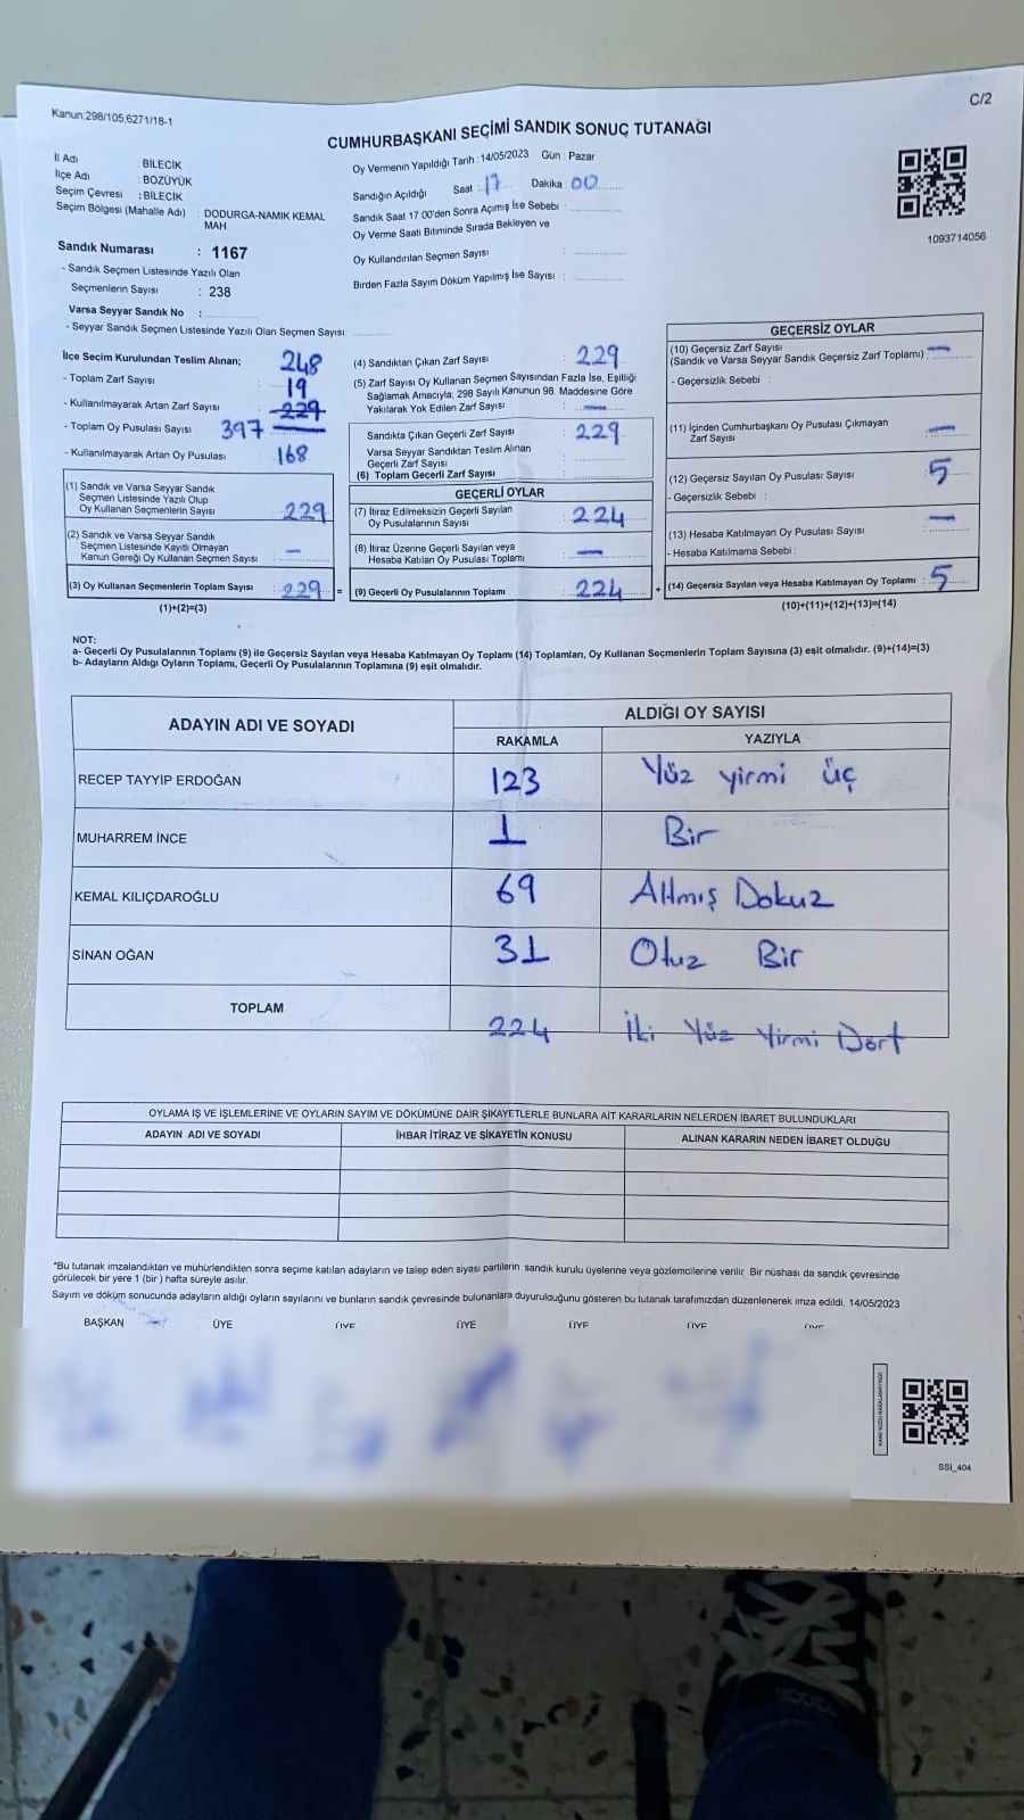 Kanun:298/105,6271/18-1
C/2
CUMHURBAŞKANI SEÇİMİ SANDIK SONUÇ TUTANAĞI
İl Adı : BİLECİK
İlçe Adı : BOZÜYÜK
Seçim Çevresi : BİLECİK
Seçim Bölgesi (Mahalle Adı) : DODURGA-NAMIK KEMAL MAH
Sandık Numarası : 1167
- Sandık Seçmen Listesinde Yazılı Olan
Seçmenlerin Sayısı : 238
Varsa Seyyar Sandık No :
- Seyyar Sandık Seçmen Listesinde Yazılı Olan Seçmen Sayısı
Oy Vermenin Yapıldığı Tarih :14/05/2023 Gün : Pazar
Sandığın Açıldığı Saat : 17 Dakika 00
Sandık Saat 17 00'den Sonra Açımış İse Sebebi :
Oy Verme Saati Bitiminde Sırada Bekleyen ve
Oy Kullandırılan Seçmen Sayısı :
Birden Fazla Sayım Döküm Yapılmış İse Sayısı :
1093714056
İlçe Seçim Kurulundan Teslim Alınan;
- Toplam Zarf Sayısı : 248
- Kullanılmayarak Artan Zarf Sayısı : 19
- Toplam Oy Pusulası Sayısı 397 229
- Kullanılmayarak Artan Oy Pusulası 168
(1) Sandık ve Varsa Seyyar Sandık
Seçmen Listesinde Yazılı Olup
Oy Kullanan Seçmenlerin Sayısı : 229
(2) Sandık ve Varsa Seyyar Sandık
Seçmen Listesinde Kayıtlı Olmayan
Kanun Gereği Oy Kullanan Seçmen Sayısı : –
(3) Oy Kullanan Seçmenlerin Toplam Sayısı : 229 =
(1)+(2)=(3)
(4) Sandıktan Çıkan Zarf Sayısı : 229
(5) Zarf Sayısı Oy Kullanan Seçmen Sayısından Fazla İse, Eşitliği
Sağlamak Amacıyla; 298 Sayılı Kanunun 98. Maddesine Göre
Yakılarak Yok Edilen Zarf Sayısı : –
Sandıkta Çıkan Geçerli Zarf Sayısı : 229
Varsa Seyyar Sandıktan Teslim Alınan
Geçerli Zarf Sayısı :
(6) Toplam Geçerli Zarf Sayısı :
GEÇERLİ OYLAR
(7) İtiraz Edilmeksizin Geçerli Sayılan
Oy Pusulalarının Sayısı : 224
(8) İtiraz Üzerine Geçerli Sayılan veya
Hesaba Katılan Oy Pusulası Toplamı : –
(9) Geçerli Oy Pusulalarının Toplamı : 224 +
GEÇERSİZ OYLAR
(10) Geçersiz Zarf Sayısı
(Sandık ve Varsa Seyyar Sandık Geçersiz Zarf Toplamı) : –
- Geçersizlik Sebebi :
(11) İçinden Cumhurbaşkanı Oy Pusulası Çıkmayan
Zarf Sayısı : –
(12) Geçersiz Sayılan Oy Pusulası Sayısı : 5
- Geçersizlik Sebebi :
(13) Hesaba Katılmayan Oy Pusulası Sayısı : –
- Hesaba Katılmama Sebebi :
(14) Geçersiz Sayılan veya Hesaba Katılmayan Oy Toplamı : 5
(10)+(11)+(12)+(13)=(14)
NOT:
a- Geçerli Oy Pusulalarının Toplamı (9) ile Geçersiz Sayılan veya Hesaba Katılmayan Oy Toplamı (14) Toplamları, Oy Kullanan Seçmenlerin Toplam Sayısına (3) eşit olmalıdır. (9)+(14)=(3)
b- Adayların Aldığı Oyların Toplamı, Geçerli Oy Pusulalarının Toplamına (9) eşit olmalıdır.
ADAYIN ADI VE SOYADI
ALDIĞI OY SAYISI
RAKAMLA YAZIYLA
RECEP TAYYİP ERDOĞAN 123 Yüz yirmi üç
MUHARREM İNCE 1 Bir
KEMAL KILIÇDAROĞLU 69 Altmış Dokuz
SİNAN OĞAN 31 Otuz Bir
TOPLAM 224 İki Yüz Yirmi Dört
OYLAMA İŞ VE İŞLEMLERİNE VE OYLARIN SAYIM VE DÖKÜMÜNE DAİR ŞİKAYETLERLE BUNLARA AİT KARARLARIN NELERDEN İBARET BULUNDUKLARI
ADAYIN ADI VE SOYADI İHBAR İTİRAZ VE ŞİKAYETİN KONUSU ALINAN KARARIN NEDEN İBARET OLDUĞU
*Bu tutanak imzalandıktan ve mühürlendikten sonra seçime katılan adayların ve talep eden siyasi partilerin sandık kurulu üyelerine veya gözlemcilerine verilir. Bir nüshası da sandık çevresinde
görülecek bir yere 1 (bir) hafta süreyle asılır.
Sayım ve döküm sonucunda adayların aldığı oyların sayılarını ve bunların sandık çevresinde bulunanlara duyurulduğunu gösteren bu tutanak tarafımızdan düzenlenerek imza edildi. 14/05/2023
BAŞKAN ÜYE ÜYE ÜYE ÜYE ÜYE ÜYE
SSİ_404